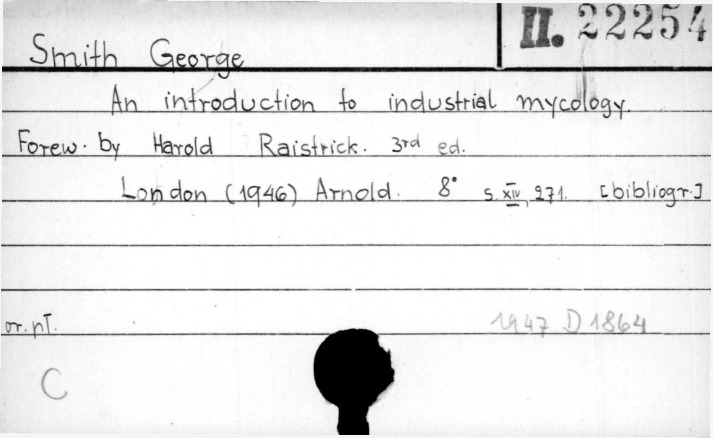 Smith George
II. 22254
An introduction to industrial mycology.
Forew. by Harold Raistrick. 3rd ed.
London (1946) Arnold. 8° s. XIV, 271. [bibliogr.]
or. nT.
1947 D 1864
C